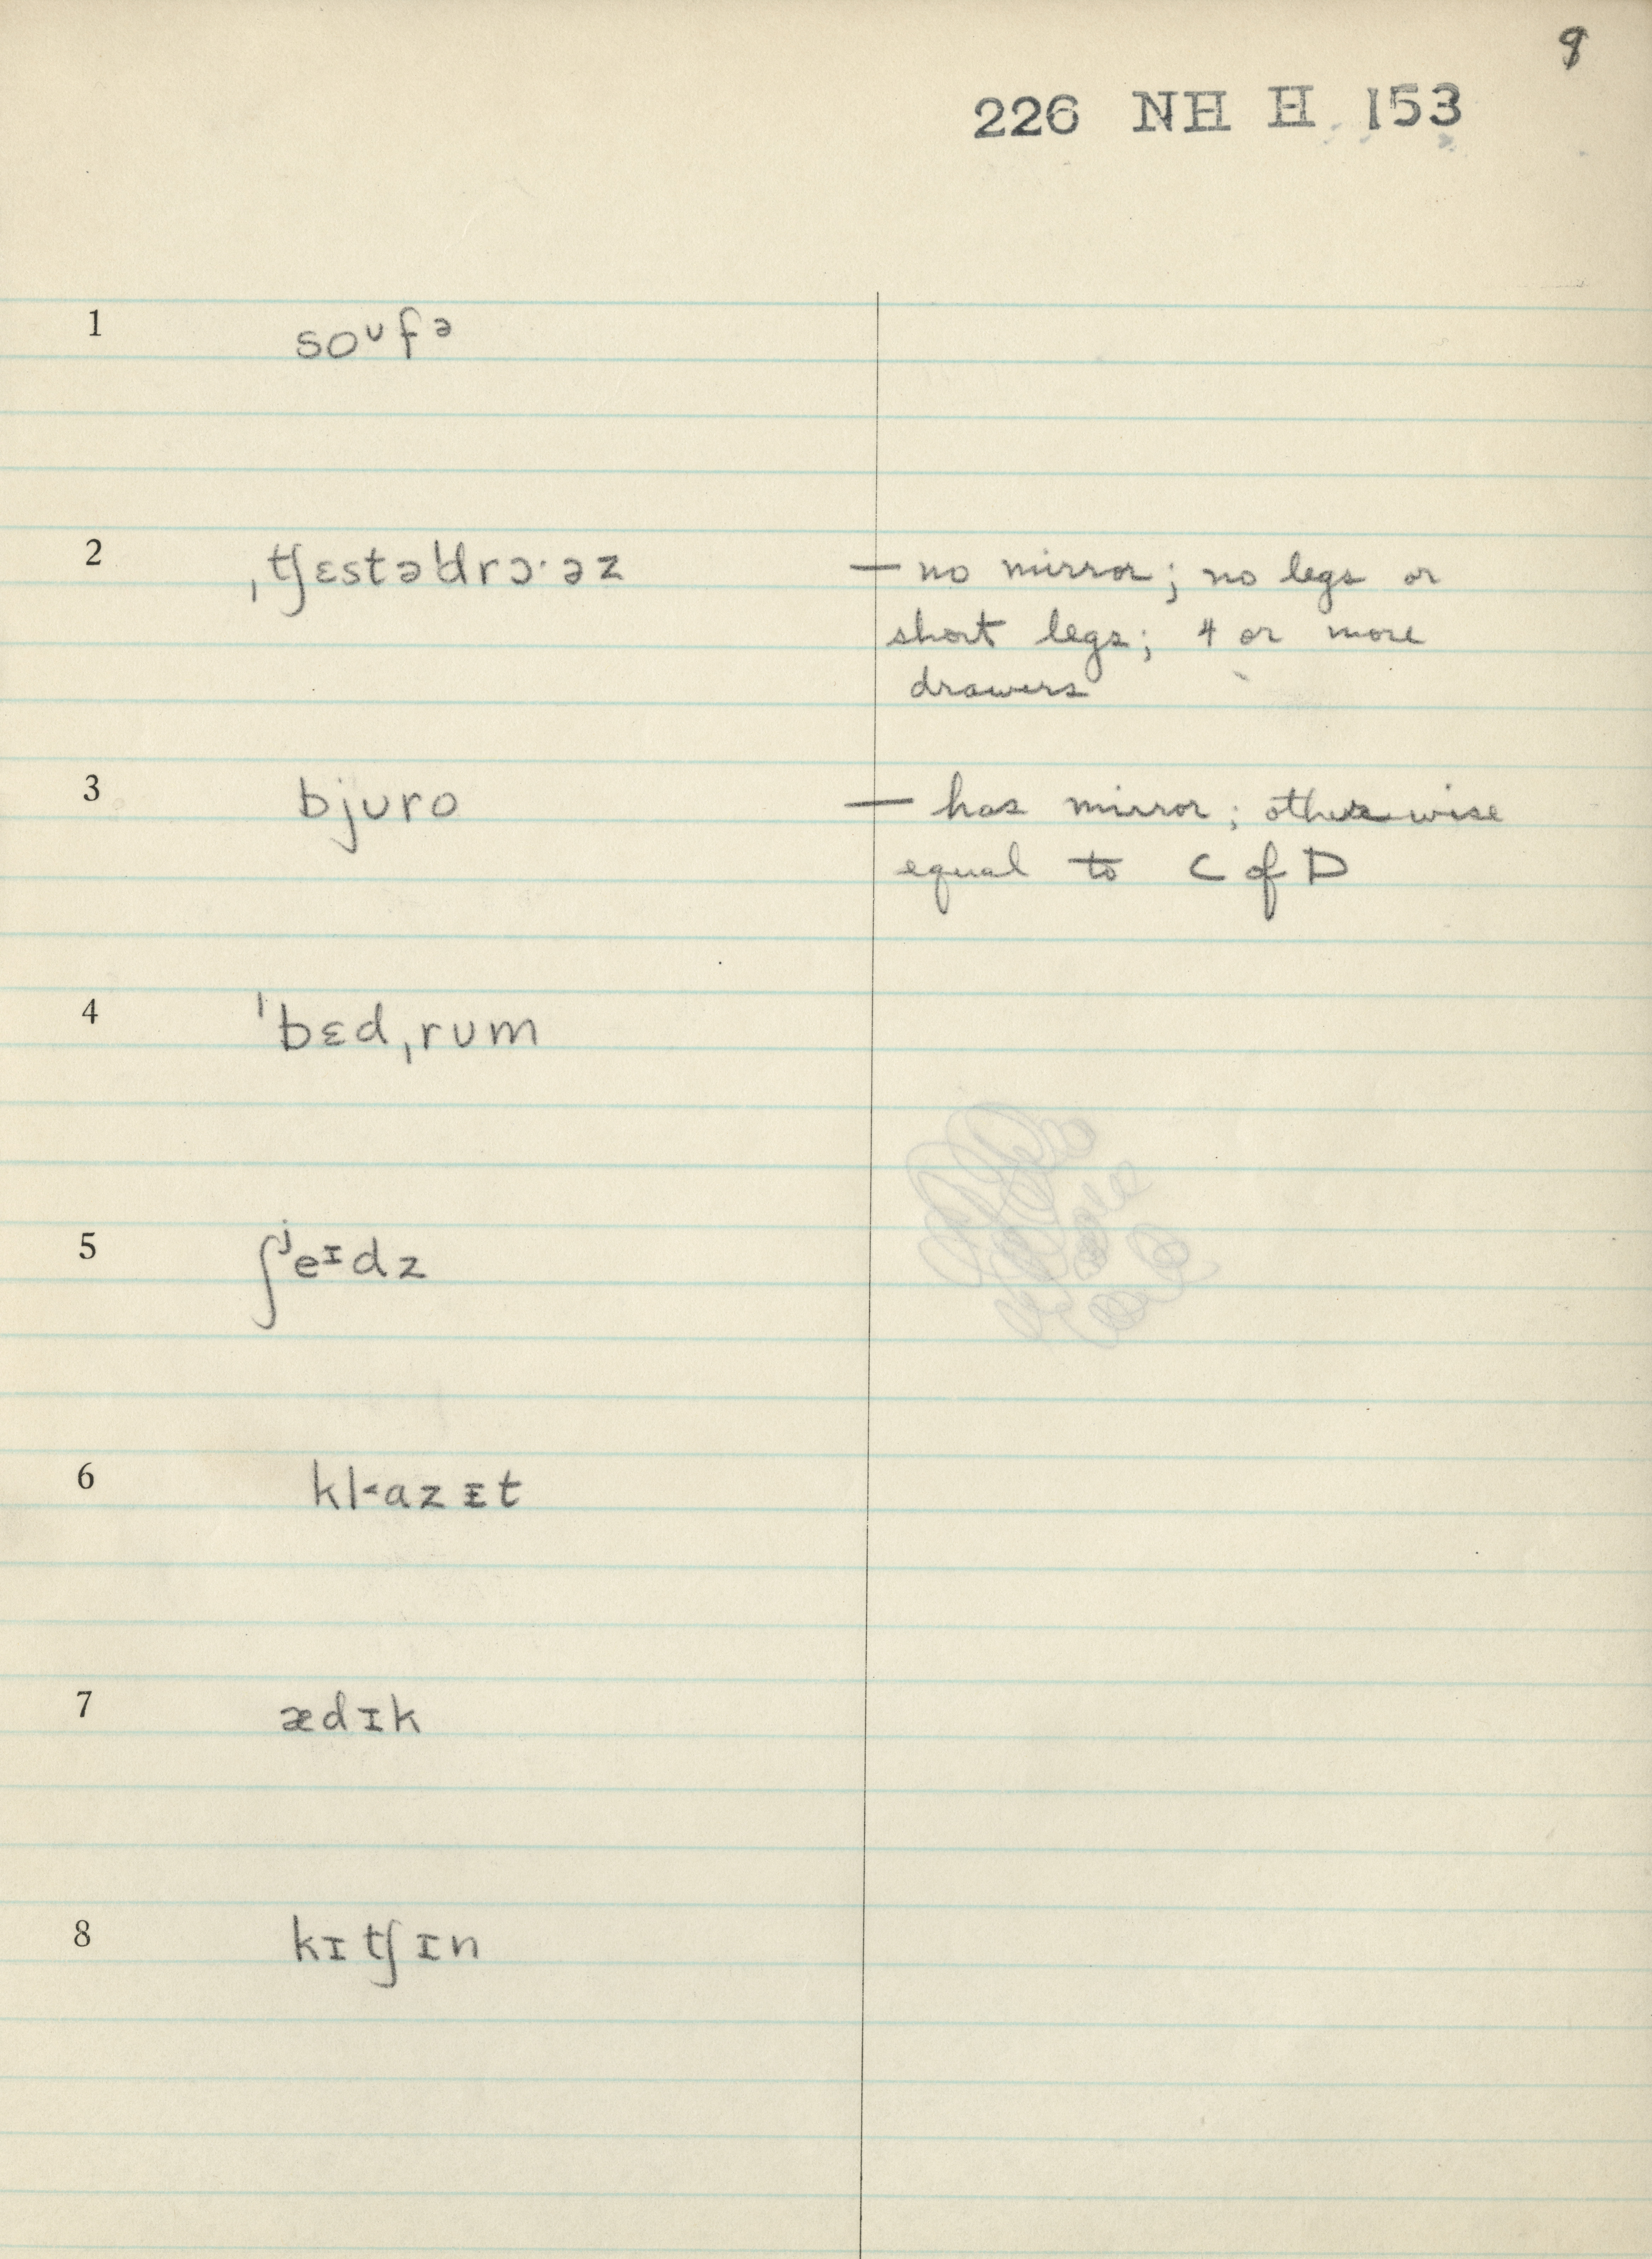 9
226 NH H 153
1 soᶷfə
2 ˌʧɛstəˈdrɔ·əz — no mirror; no legs or
short legs; 4 or more
drawers
3 bjʊro — has mirror; otherwise
equal to C of D
4 ˈbɛdˌrʊm
5 ʃʲeᶦdz
6 kl˂azɪt
7 ædɪk
8 kɪʧɪn